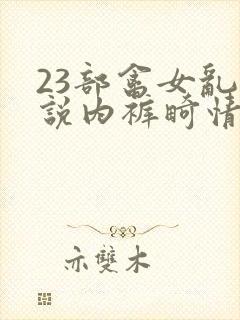 23部畲女乱
說内裤畸情
亦雙木